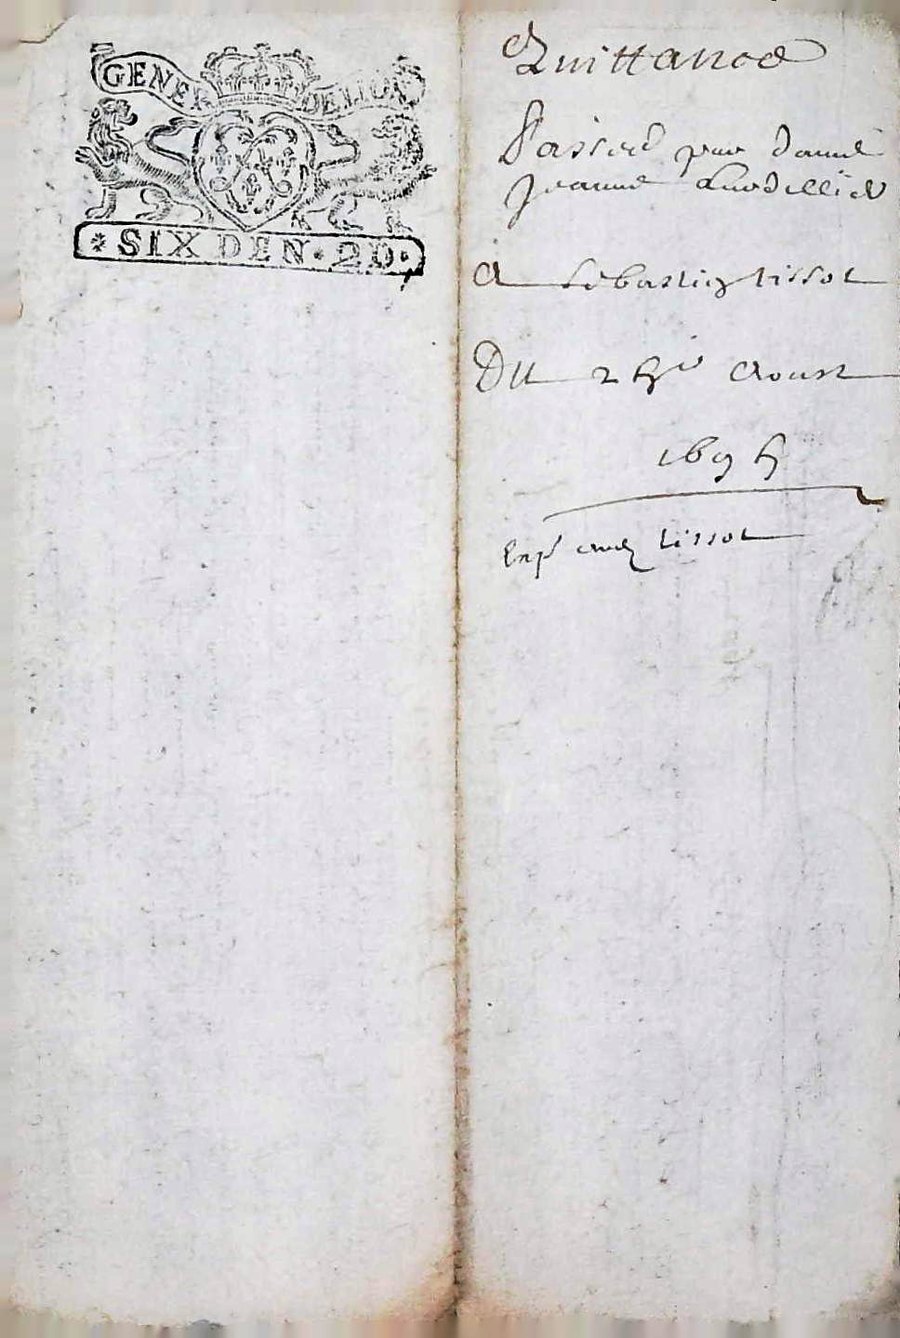 GENER DELION
* SIX DEN · 2D ·
Quittance
Passee par dame
Jeanne
A Sebastie tissot
Du 25e Aoust
1695
Exp tissot